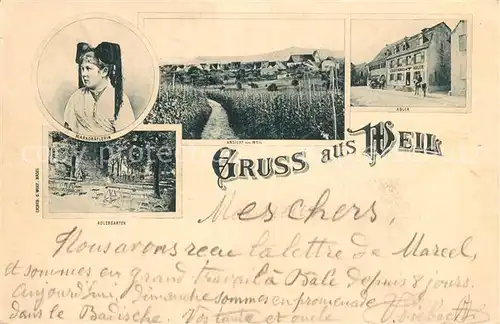 MARKGRÄFLERIN
ANSICHT von WEIL
ADLER
ADLERGARTEN
GRUSS aus WEIL
Mes chers,
Nous avons reçu la lettre de Marcel,
et sommes en grand travail à Bâle depuis 8 jours.
Aujourd'hui, dimanche sommes en promenade
dans le Badische. Vos tante et oncle